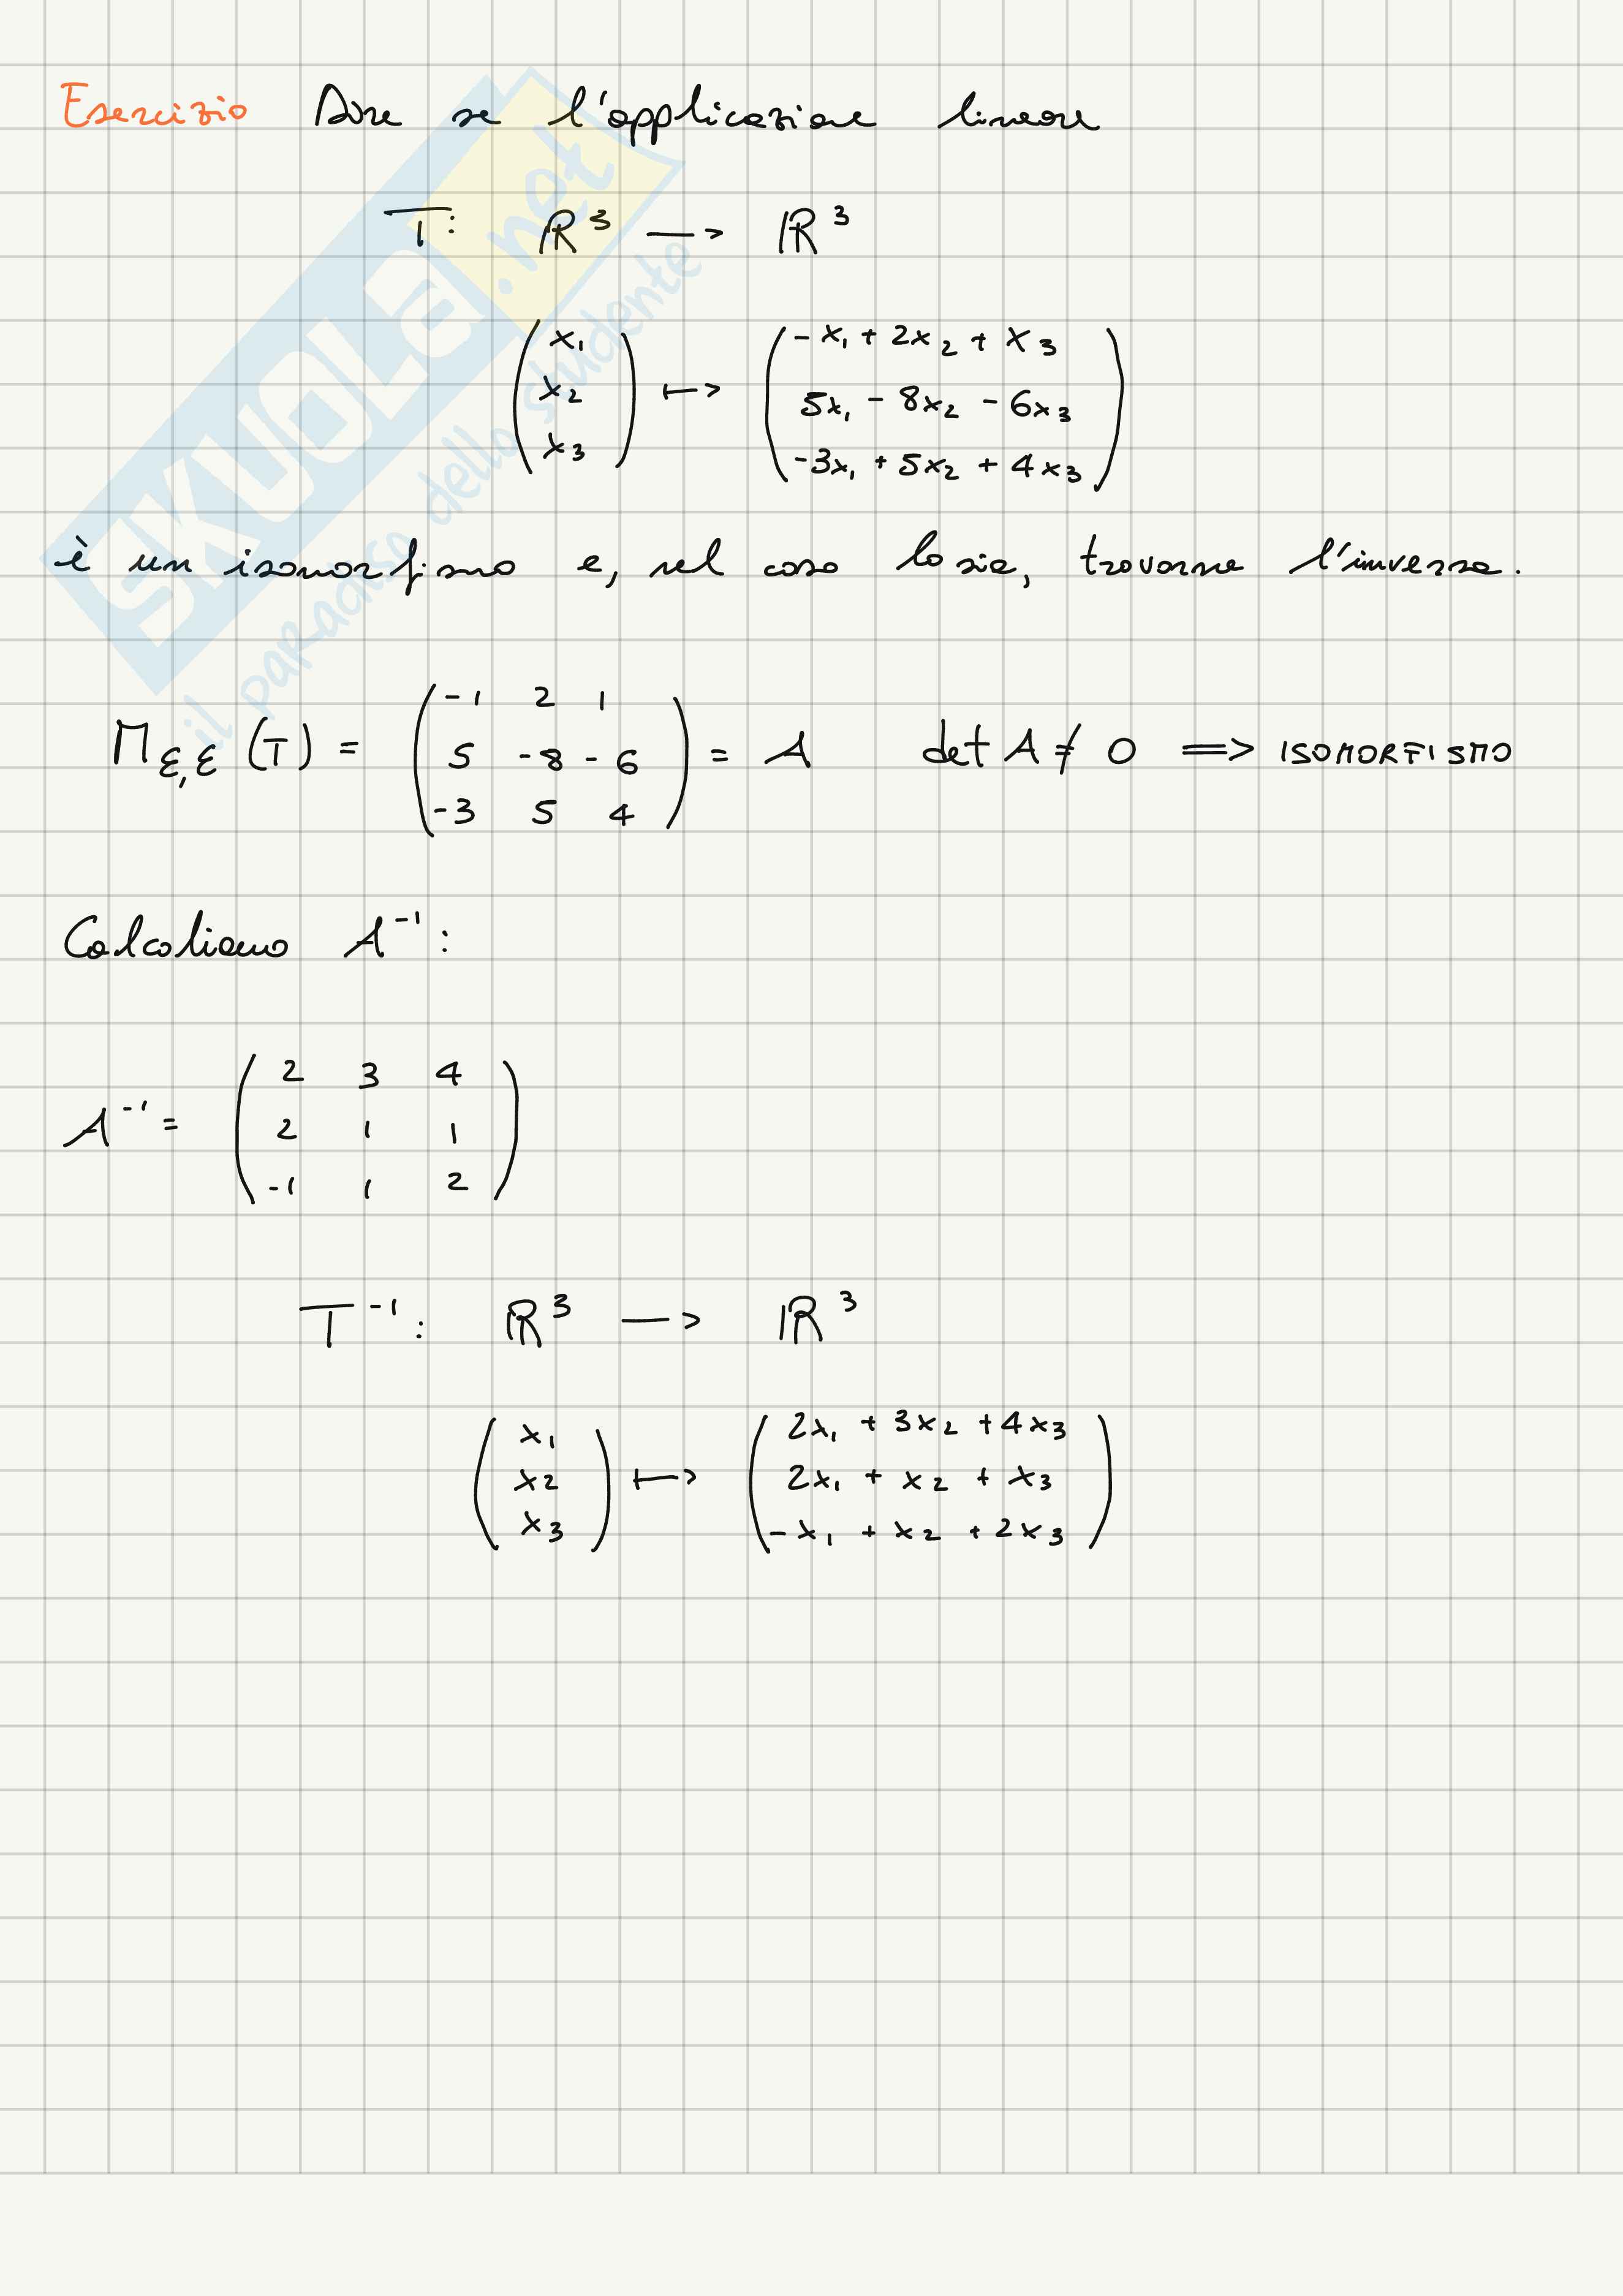 Esercizio Dire se l'applicazione lineare
T: ℝ³ → ℝ³
(x₁ x₂ x₃) ↦ (-x₁ + 2x₂ + x₃
5x₁ - 8x₂ - 6x₃
-3x₁ + 5x₂ + 4x₃)
è un isomorfismo e, nel caso lo sia, trovarne l'inversa.
M_{ℰ,ℰ}(T) = (-1 2 1
5 -8 -6
-3 5 4) = A det A ≠ 0 ⟹ ISOMORFISMO
Calcoliamo A⁻¹:
A⁻¹ = (2 3 4
2 1 1
-1 1 2)
T⁻¹: ℝ³ → ℝ³
(x₁ x₂ x₃) ↦ (2x₁ + 3x₂ + 4x₃
2x₁ + x₂ + x₃
-x₁ + x₂ + 2x₃)
SKUOLa.net
il paradiso dello studente